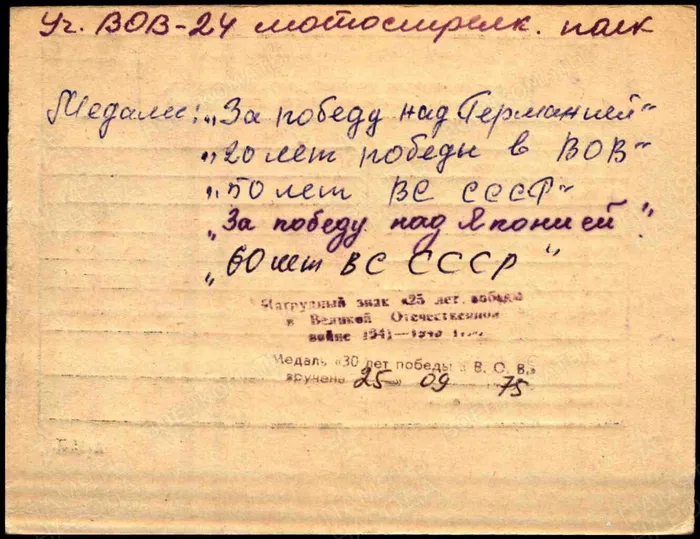 Уч. ВОВ-24 мотострелк. полк
Медали: „За победу над Германией“
„20 лет победы в ВОВ“
„50 лет ВС СССР“
„За победу над Японией“.
„60 лет ВС СССР“
Нагрудный знак «25 лет победы
в Великой Отечественной
войне 1941—1945
Медаль «30 лет победы в В. О. В.»
вручена 25 09 75